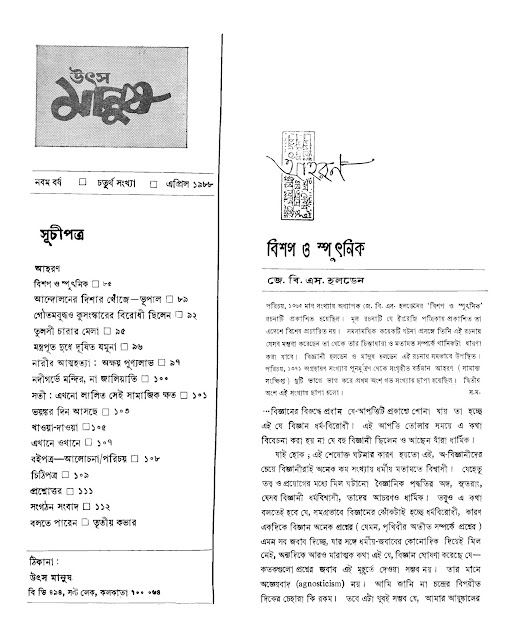 উৎস
মানুষ
নবম বর্ষ □ চতুর্থ সংখ্যা □ এপ্রিল ১৯৮৮
সূচীপত্র
আহরণ
বিশপ ও স্পুৎনিক □ ৮৫
আন্দোলনের দিশার খোঁজে—ভূপাল □ ৮৯
গৌতমবুদ্ধও কুসংস্কারের বিরোধী ছিলেন □ ৯২
তুলসী চারার মেলা □ ৯৫
মন্ত্রপূত দুধে দূষিত যমুনা □ ৯৬
নারীর আত্মহত্যা : অক্ষয় পুণ্যলাভ □ ৯৭
নদীগর্ভে মন্দির, না জালিয়াতি □ ১০০
সতী : এখনো লালিত সেই সামাজিক ক্ষত □ ১০১
ভয়ঙ্কর দিন আসছে □ ১০৩
খাওয়া-দাওয়া □১০৫
এখানে ওখানে □ ১০৭
বইপত্র—আলোচনা/পরিচয় □ ১০৮
চিঠিপত্র □ ১০৯
প্রশ্নোত্তর □ ১১১
সংগঠন সংবাদ □ ১১২
বলতে পারেন □ তৃতীয় কভার
ঠিকানা :
উৎস মানুষ
বি ডি ৪৯৪, সল্ট লেক, কলকাতা ৭০০ ০৬৪
আহরণ
বিশপ ও স্পুৎনিক
জে. বি. এস. হলডেন
পরিচয়, ১৩৬৫ মাঘ সংখ্যায় অধ্যাপক জে. বি. এস- হলডেনের 'বিশপ ও স্পুৎনিক'
রচনাটি প্রকাশিত হয়েছিল। মূল রচনাটি যে ইংরেজি পত্রিকায় প্রকাশিত তা
এদেশে বিশেষ প্রচারিত নয়। সমসাময়িক কয়েকটি ঘটনা প্রসঙ্গে তিনি এই রচনায়
যেসব মন্তব্য করেছেন তা থেকে তার চিন্তাধারা ও মতামত সম্পর্কে খানিকটা ধারণা
করা যাবে। বিজ্ঞানী হলডেন ও মানুষ হলডেন এই রচনায় সমভাবে উপস্থিত।
পরিচয়, অগ্রহায়ণ সংখ্যায় পুনর্মুদ্রণ থেকে সংগৃহীত বর্তমান আহরণ (সামান্য
সংক্ষিপ্ত) দুটি ভাগে ভাগ করে প্রথম অংশ গত সংখ্যায় ছাপা হয়েছিল। দ্বিতীয়
অংশ এই সংখ্যায় ছাপা হলো। স.ম.
…বিজ্ঞানের বিরুদ্ধে প্রধান যে-আপত্তিটি প্রকাশ্যে শোনা যায় তা হচ্ছে
এই যে বিজ্ঞান ধর্ম-বিরোধী। এই আপত্তি তোলার সময়ে এ কথা
বিবেচনা করা হয় না যে বহু বিজ্ঞানী ছিলেন ও আছেন যাঁরা ধার্মিক।
যাই হোক ; এই শেষোক্ত ঘটনার কারণ হয়তো এই, অ-বিজ্ঞানীদের
চেয়ে বিজ্ঞানীরাই অনেক কম সংখ্যায় ধর্মীয় মতামতে বিশ্বাসী। যেহেতু
তত্ত্ব ও প্রয়োগের মধ্যে মিল ঘটানো বৈজ্ঞানিক পদ্ধতির অঙ্গ, সুতরাং,
যেসব বিজ্ঞানী ধর্মবিশ্বাসী, তাদের আচরণও ধার্মিক। তবুও এ কথা
বলতেই হবে যে, সমগ্রভাবে বিজ্ঞানের ঝোঁকটাই হচ্ছে ধর্মবিরোধী, কারণ
একদিকে বিজ্ঞান অনেক প্রশ্নের ( যেমন, পৃথিবীর অতীত সম্পর্কে প্রশ্নের )
এমন সব জবাব দিচ্ছে, যার সঙ্গে ধর্মীয়-জবাবের কোনোদিক দিয়েই মিল
নেই, অন্যদিকে আরও মারাত্মক কথা এই যে, বিজ্ঞান ঘোষণা করেছে যে—
কতকগুলো প্রশ্নের জবাব এই মুহূর্তে দেওয়া সম্ভব নয়। তার মানে
অজ্ঞেয়বাদ (agnosticism) নয়। আমি জানি না চন্দ্রের বিপরীত
দিকের চেহারা কি রকম। তবে এটা খুবই সম্ভব যে, আমার আয়ুষ্কালের